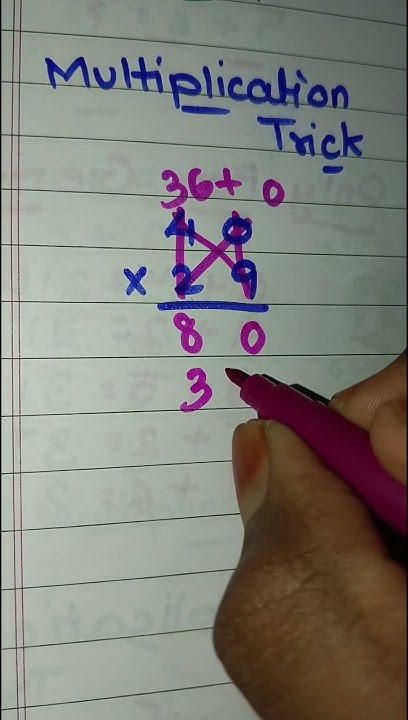 Multiplication
Trick
36+ 0
40
x 29
8 0
3